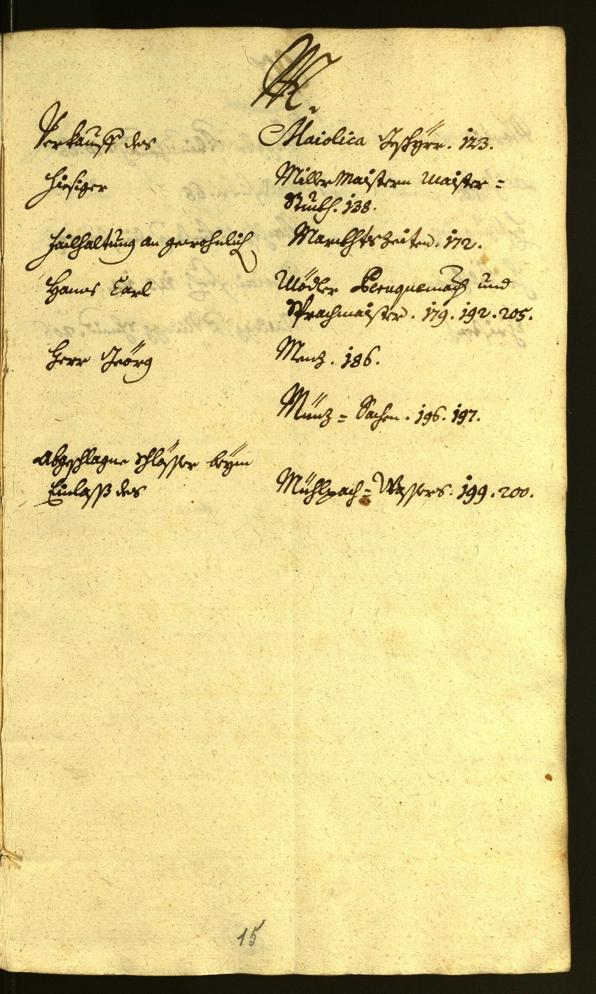 M.
Verkauff des Maiolica Geschürr. 123.
Hiesiger Miller Maistern Maister=
Stuckh. 138.
Failhaltung an gewohnlich Marckhtszeiten. 172.
Hanns Carl Mödler Perruquemach und
Sprachmaister. 179. 192. 205.
Herr Geörg Menz. 186.
Münz=Sachen. 196. 197.
Abgeschlagne Schlösser beym
Einlass des Mühlpach=Wassers. 199. 200.
15